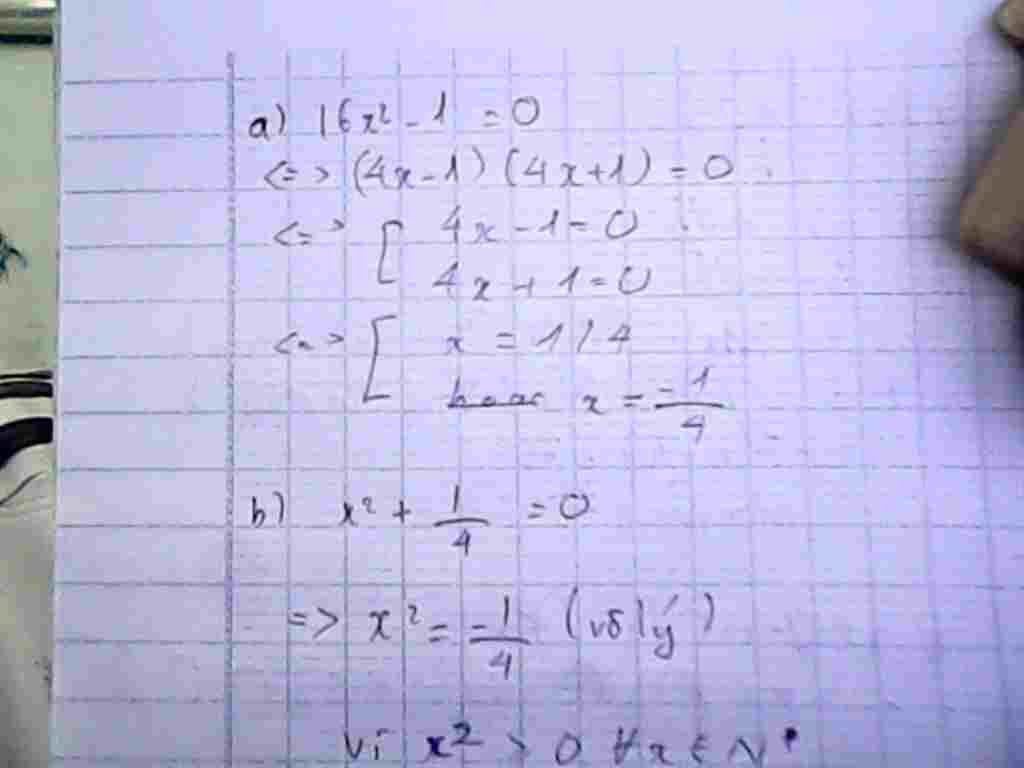 a) 16x² - 1 = 0
<=> (4x - 1) (4x + 1) = 0
<=> [ 4x - 1 = 0
4x + 1 = 0
<=> [ x = 1/4
x = -1/4
b) x² + 1/4 = 0
=> x² = -1/4 (vô lý)
Vì x² > 0 ∀x ∈ N*